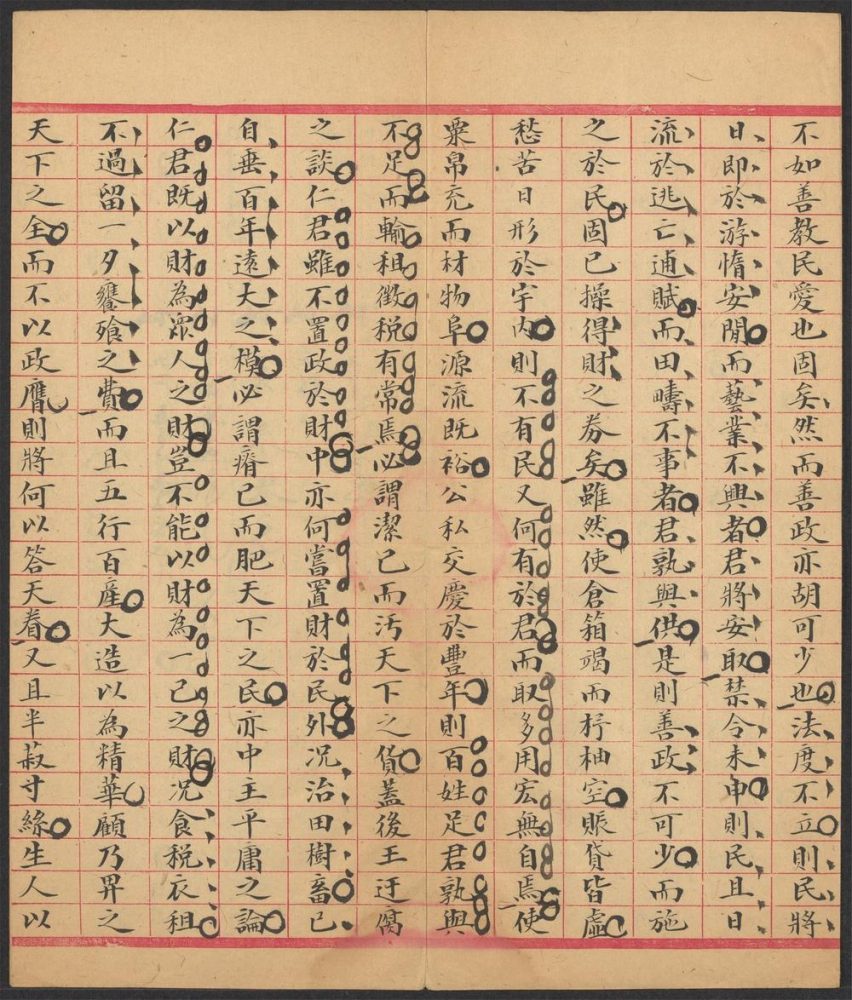 不如善教民愛也固矣然而善政亦胡可少也法度不立則民將
日即於游惰安閒而藝業不興者君將安取禁令未申則民且日
流於逃亡逋賦而田疇不事者君孰與供是則善政不可少而施
之於民固已操得財之券矣雖然使倉箱竭而杼柚空賑貸皆虛
愁苦日形於宇內則不有民又何有於君而取多用宏無自焉使
粟帛充而材物阜源流既裕公私交慶於豐年則百姓足君孰與
不足而輸租徵稅有常焉必謂潔己而汚天下之貨蓋後王迂腐
之談仁君雖不置政於財中亦何嘗置財於民外況治田樹畜已
自垂百年遠大之模必謂瘠己而肥天下之民亦中主平庸之論
仁君既以財為眾人之財豈不能以財為一己之財況食稅衣租
不過留一夕饔飧之費而且五行百產大造以為精華顧乃畀之
天下之全而不以政膺則將何以答天眷又且半菽寸絲生人以